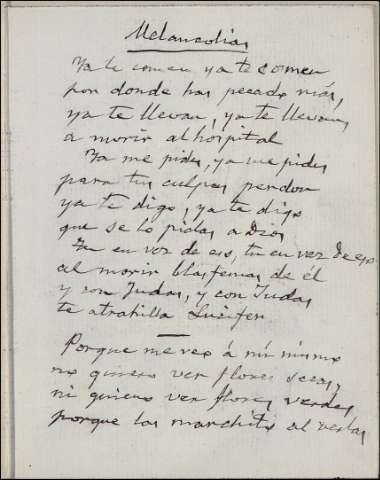 Melancolias
Ya te comen ya te comen
por donde has pecado más,
ya te llevan, ya te llevan
a morir al hospital
Ya me pides, ya me pides
para tus culpas perdon
ya te digo, ya te digo
que se lo pidas a Dios
Tu en vez de eso, tu en vez de eso
al morir blasfemas de él
y con Judas, y con Judas
te atrahilla Lucifer
Porque me veo á mi mismo
no quiero ver flores secas,
ni quiero ver flores verdes
porque las marchito al verlas